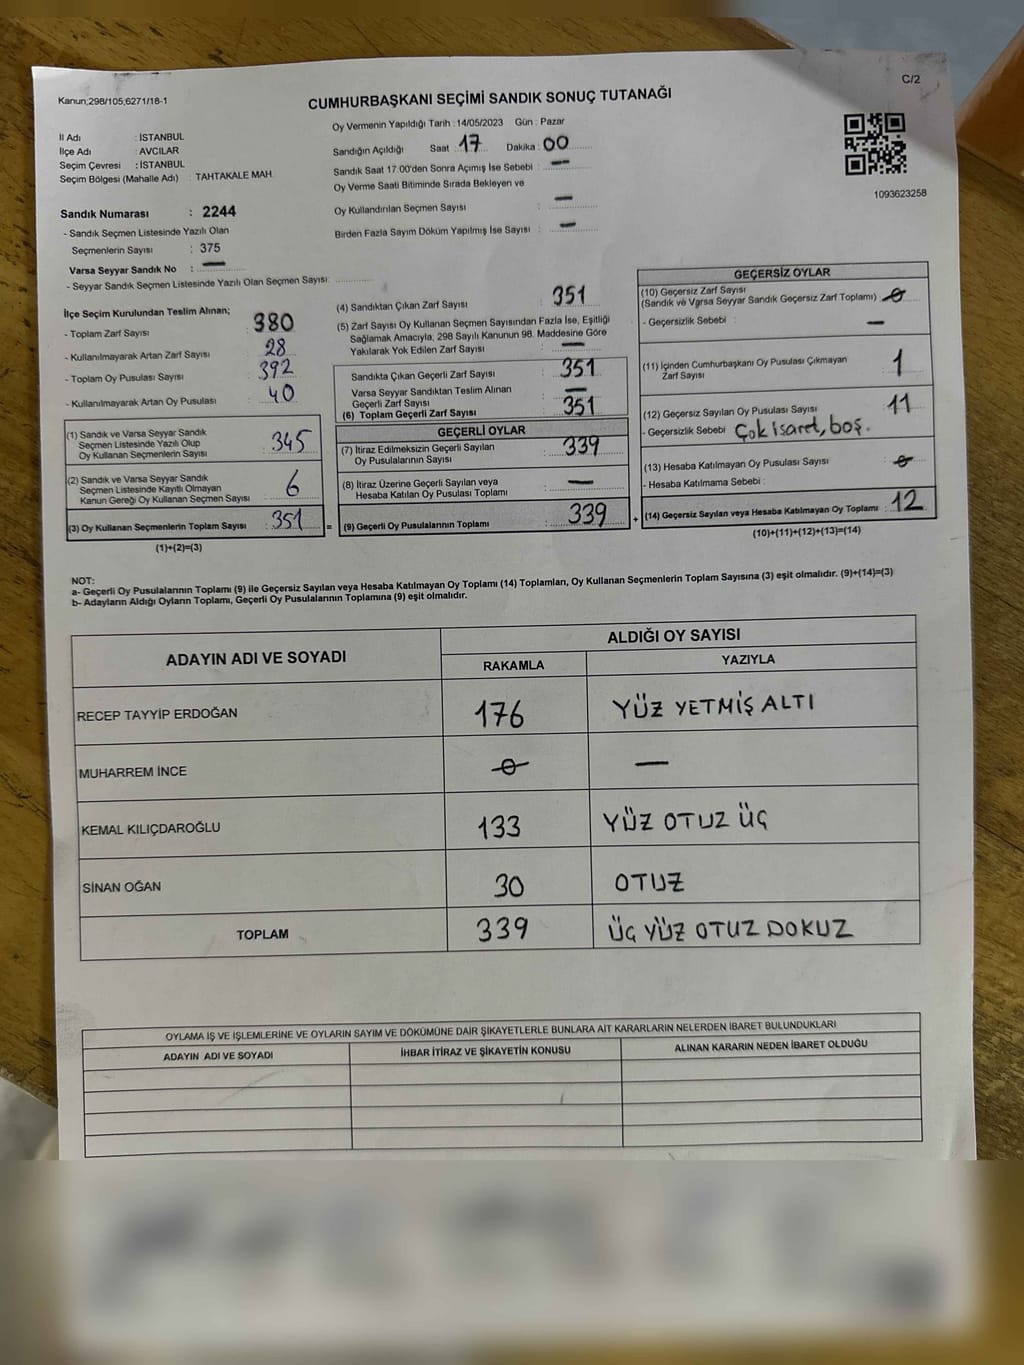 Kanun;298/105;6271/18-1
C/2
CUMHURBAŞKANI SEÇİMİ SANDIK SONUÇ TUTANAĞI
İl Adı : İSTANBUL
İlçe Adı : AVCILAR
Seçim Çevresi : İSTANBUL
Seçim Bölgesi (Mahalle Adı) : TAHTAKALE MAH.
Sandık Numarası : 2244
- Sandık Seçmen Listesinde Yazılı Olan
Seçmenlerin Sayısı : 375
Varsa Seyyar Sandık No : —
- Seyyar Sandık Seçmen Listesinde Yazılı Olan Seçmen Sayısı:
Oy Vermenin Yapıldığı Tarih : 14/05/2023 Gün : Pazar
Sandığın Açıldığı Saat : 17 Dakika : 00
Sandık Saat 17:00'den Sonra Açımış İse Sebebi : —
Oy Verme Saati Bitiminde Sırada Bekleyen ve
Oy Kullandırılan Seçmen Sayısı : —
Birden Fazla Sayım Döküm Yapılmış İse Sayısı : —
1093623258
İlçe Seçim Kurulundan Teslim Alınan;
- Toplam Zarf Sayısı : 380
- Kullanılmayarak Artan Zarf Sayısı : 28
- Toplam Oy Pusulası Sayısı : 392
- Kullanılmayarak Artan Oy Pusulası : 40
(1) Sandık ve Varsa Seyyar Sandık
Seçmen Listesinde Yazılı Olup
Oy Kullanan Seçmenlerin Sayısı : 345
(2) Sandık ve Varsa Seyyar Sandık
Seçmen Listesinde Kayıtlı Olmayan
Kanun Gereği Oy Kullanan Seçmen Sayısı : 6
(3) Oy Kullanan Seçmenlerin Toplam Sayısı : 351 =
(1)+(2)=(3)
(4) Sandıktan Çıkan Zarf Sayısı : 351
(5) Zarf Sayısı Oy Kullanan Seçmen Sayısından Fazla İse, Eşitliği
Sağlamak Amacıyla, 298 Sayılı Kanunun 98. Maddesine Göre
Yakılarak Yok Edilen Zarf Sayısı : —
Sandıkta Çıkan Geçerli Zarf Sayısı : 351
Varsa Seyyar Sandıktan Teslim Alınan
Geçerli Zarf Sayısı : —
(6) Toplam Geçerli Zarf Sayısı : 351
GEÇERLİ OYLAR
(7) İtiraz Edilmeksizin Geçerli Sayılan
Oy Pusulalarının Sayısı : 339
(8) İtiraz Üzerine Geçerli Sayılan veya
Hesaba Katılan Oy Pusulası Toplamı : —
(9) Geçerli Oy Pusulalarının Toplamı : 339 +
GEÇERSİZ OYLAR
(10) Geçersiz Zarf Sayısı
(Sandık ve Varsa Seyyar Sandık Geçersiz Zarf Toplamı) : 0
- Geçersizlik Sebebi : —
(11) İçinden Cumhurbaşkanı Oy Pusulası Çıkmayan
Zarf Sayısı : 1
(12) Geçersiz Sayılan Oy Pusulası Sayısı : 11
- Geçersizlik Sebebi Çok isaret, boş.
(13) Hesaba Katılmayan Oy Pusulası Sayısı : 0
- Hesaba Katılmama Sebebi :
(14) Geçersiz Sayılan veya Hesaba Katılmayan Oy Toplamı : 12
(10)+(11)+(12)+(13)=(14)
NOT:
a- Geçerli Oy Pusulalarının Toplamı (9) ile Geçersiz Sayılan veya Hesaba Katılmayan Oy Toplamı (14) Toplamları, Oy Kullanan Seçmenlerin Toplam Sayısına (3) eşit olmalıdır. (9)+(14)=(3)
b- Adayların Aldığı Oyların Toplamı, Geçerli Oy Pusulalarının Toplamına (9) eşit olmalıdır.
ADAYIN ADI VE SOYADI ALDIĞI OY SAYISI
RAKAMLA YAZIYLA
RECEP TAYYİP ERDOĞAN 176 YÜZ YETMİŞ ALTI
MUHARREM İNCE 0 —
KEMAL KILIÇDAROĞLU 133 YÜZ OTUZ ÜÇ
SİNAN OĞAN 30 OTUZ
TOPLAM 339 ÜÇ YÜZ OTUZ DOKUZ
OYLAMA İŞ VE İŞLEMLERİNE VE OYLARIN SAYIM VE DÖKÜMÜNE DAİR ŞİKAYETLERLE BUNLARA AİT KARARLARIN NELERDEN İBARET BULUNDUKLARI
ADAYIN ADI VE SOYADI İHBAR İTİRAZ VE ŞİKAYETİN KONUSU ALINAN KARARIN NEDEN İBARET OLDUĞU